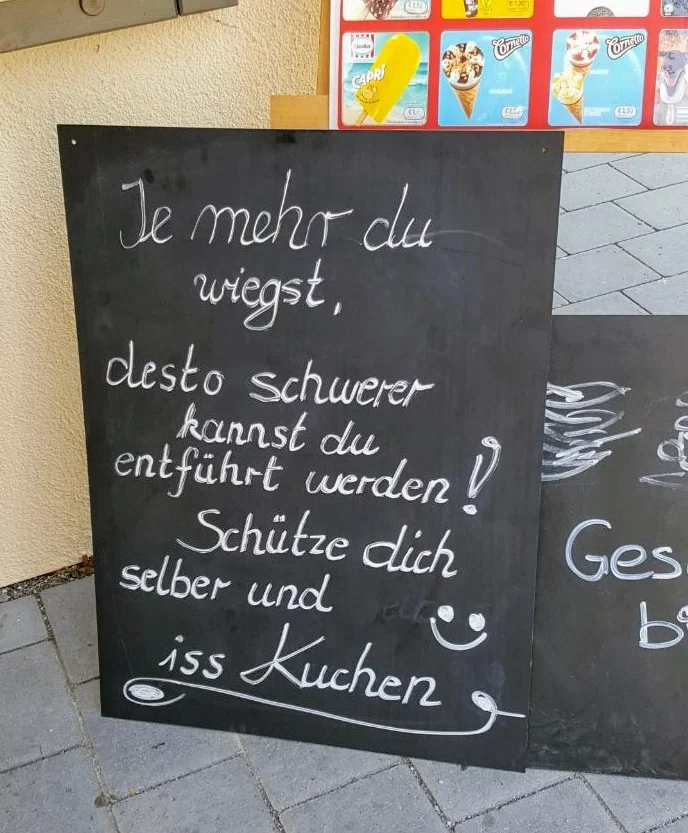 CAPRI
Cornetto
Cornetto
Je mehr du
wiegst,
desto schwerer
kannst du
entführt werden!
Schütze dich
selber und
iss Kuchen